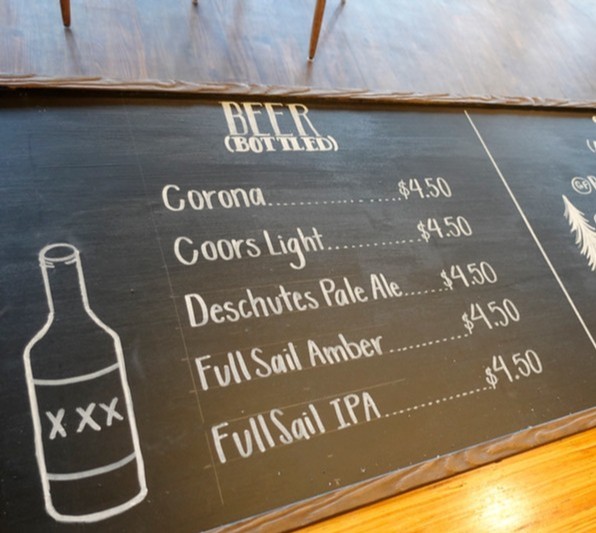 BEER
(BOTTLED)
Corona..................$4.50
Coors Light..............$4.50
Deschutes Pale Ale......$4.50
Full Sail Amber............$4.50
Full Sail IPA................$4.50
XXX
GF